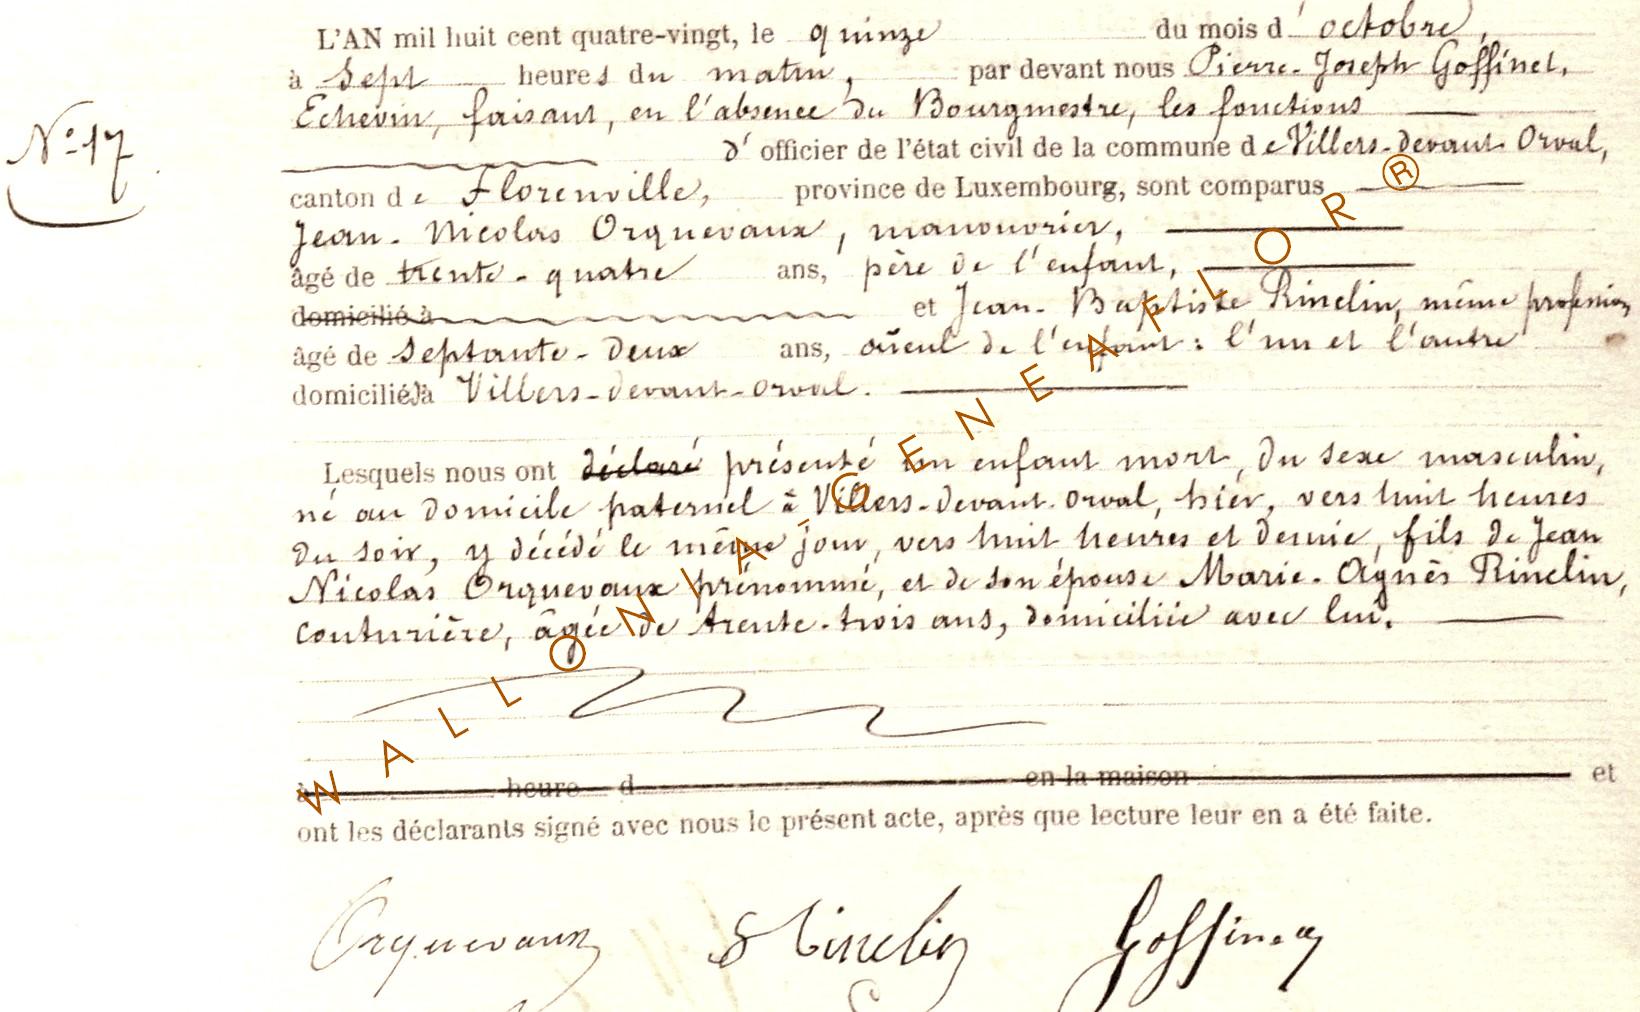 L'AN mil huit cent quatre-vingt, le quinze du mois d'octobre,
à Sept heures du matin, par devant nous Pierre-Joseph Goffinet,
Echevin, faisant, en l'absence du Bourgmestre, les fonctions
N° 17
d'officier de l'état civil de la commune de Villers-devant-Orval,
canton de Florenville, province de Luxembourg, sont comparus
Jean-Nicolas Orquevaux, manouvrier,
âgé de trente-quatre ans, père de l'enfant,
domicilié à et Jean-Baptiste Rinclin, même profession,
âgé de septante-deux ans, aïeul de l'enfant : l'un et l'autre
domicilié à Villers-devant-Orval.
Lesquels nous ont déclaré présenté un enfant mort, du sexe masculin,
né au domicile paternel à Villers-devant-Orval, hier, vers huit heures
du soir, y décédé le même jour, vers huit heures et demie, fils de Jean
Nicolas Orquevaux prénommé, et de son épouse Marie-Agnès Rinclin,
couturière, âgée de trente-trois ans, domiciliée avec lui.
à heure d en la maison et
ont les déclarants signé avec nous le présent acte, après que lecture leur en a été faite.
Orquevaux Rinclin Goffinet
WALLONIA-GENEAFLOR®